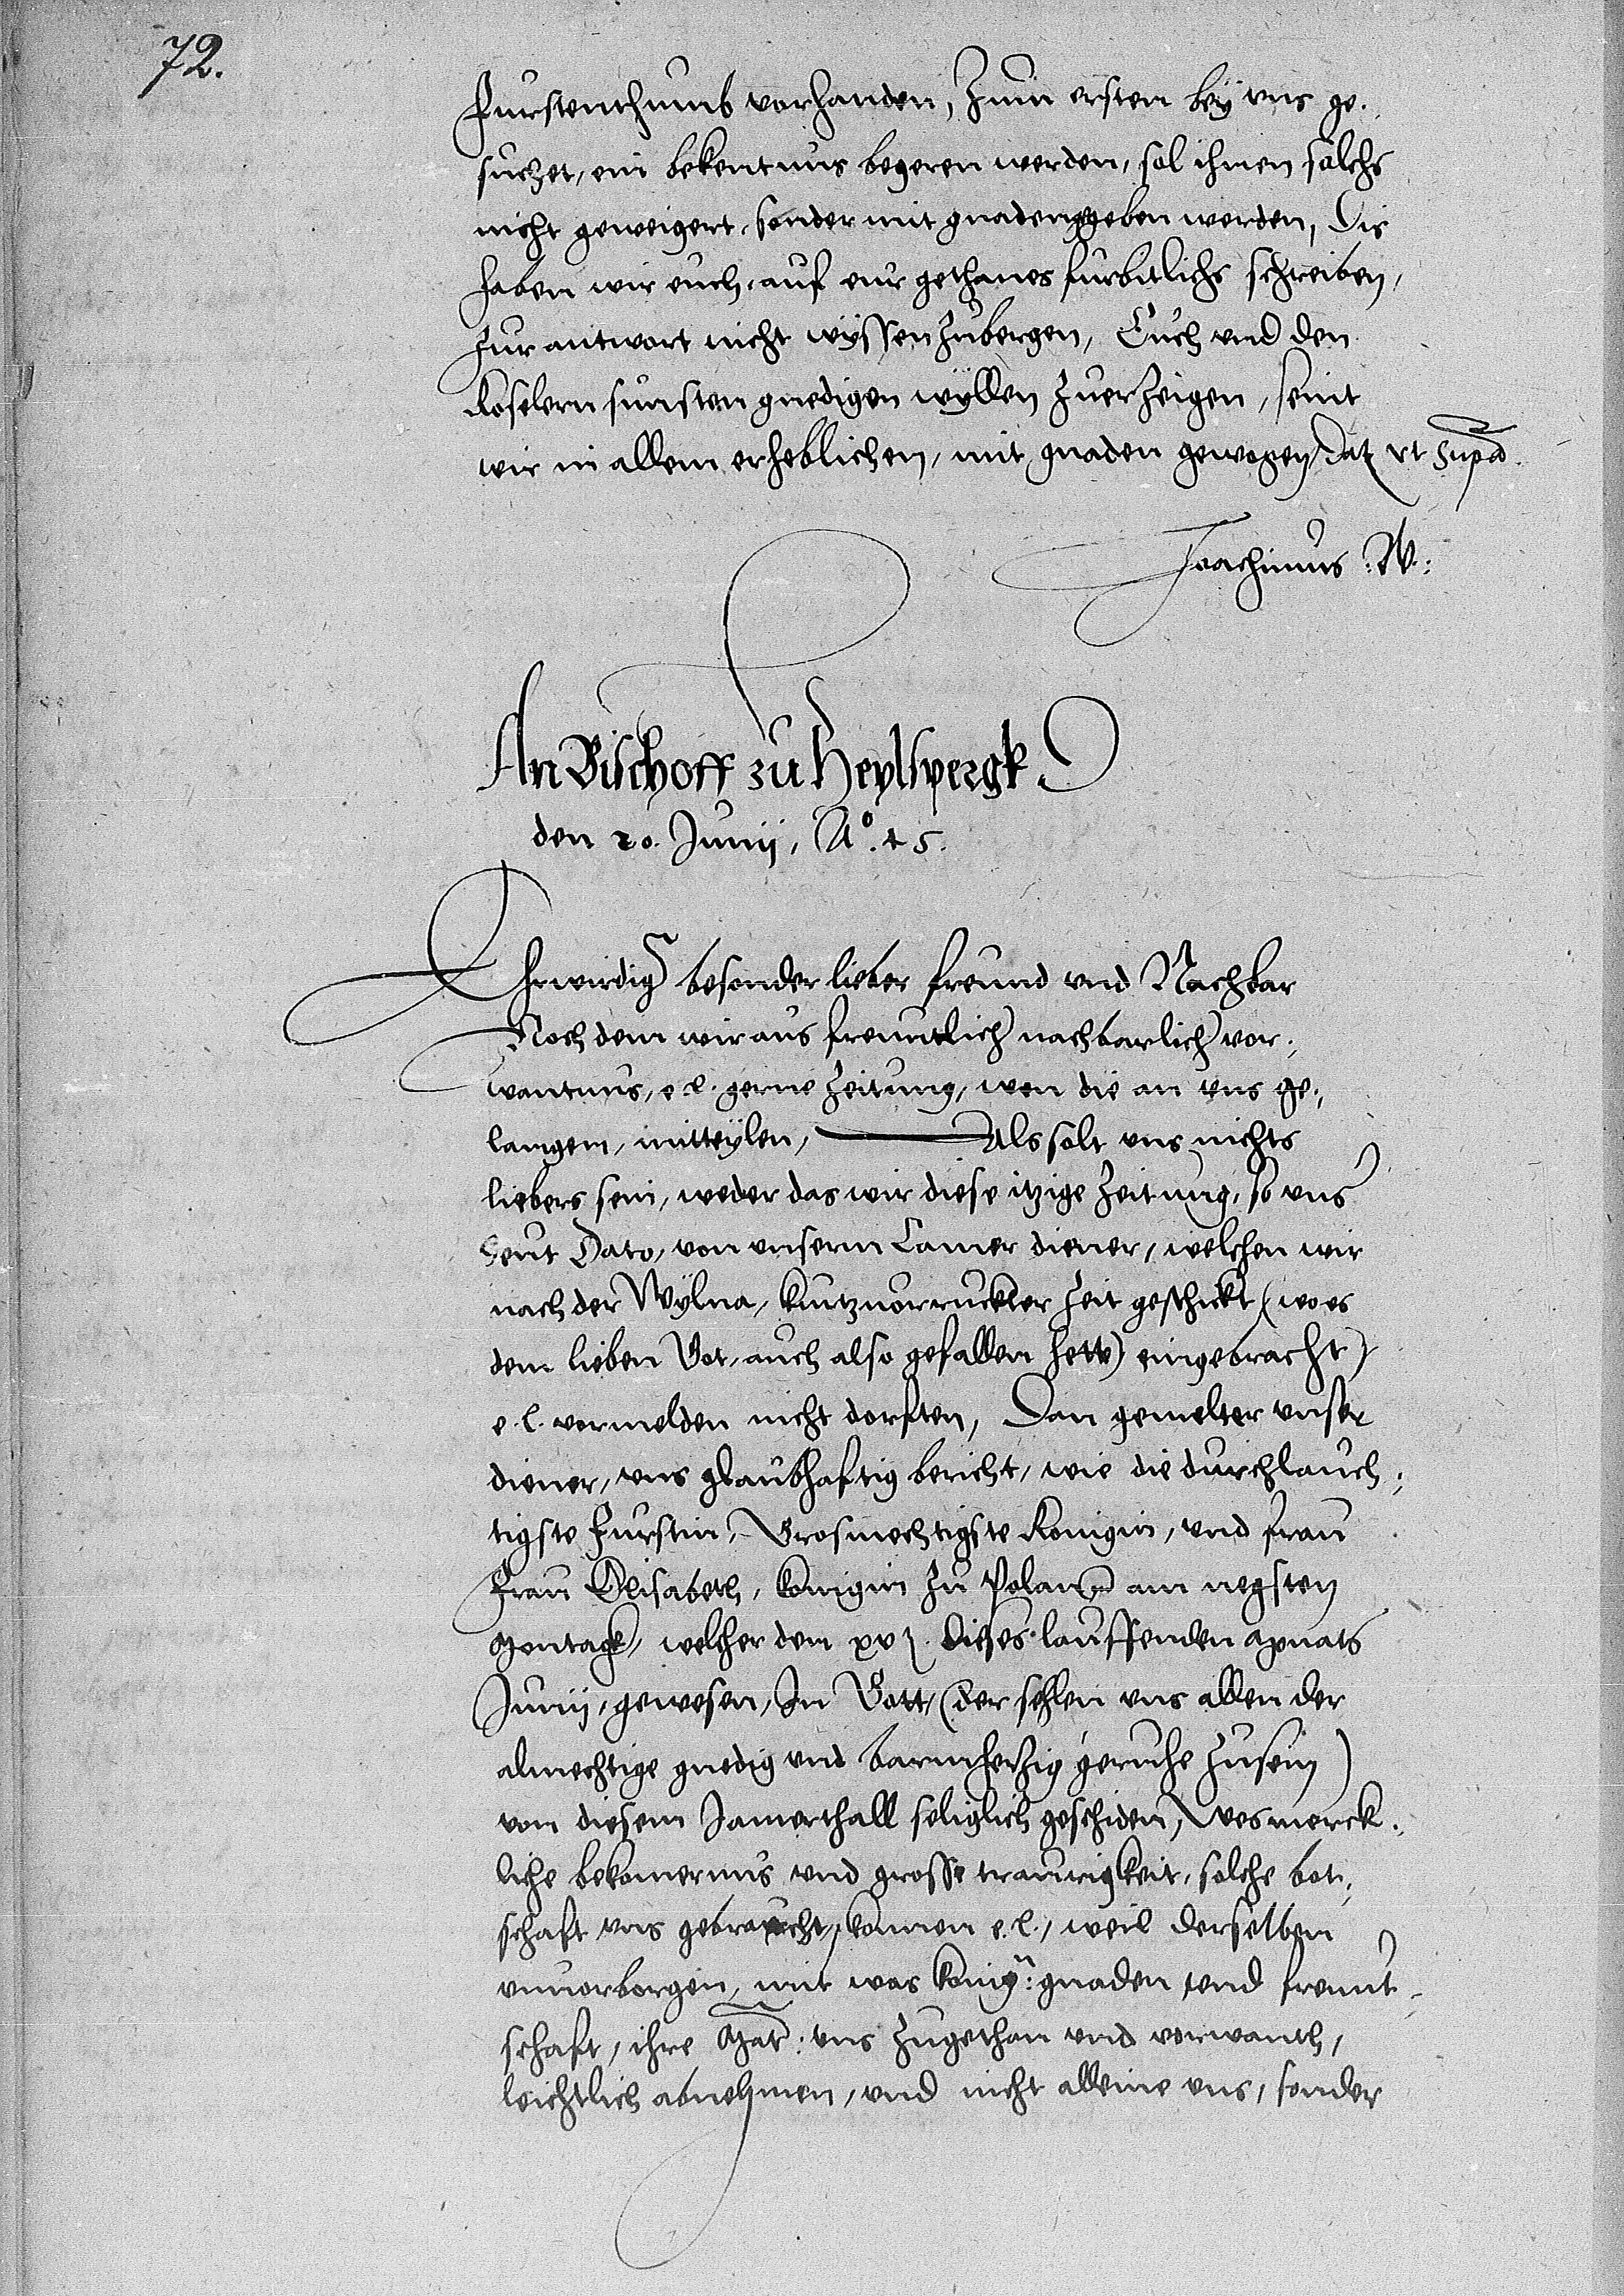 72.
Furstenthumb vorhanden, zum ersten bey vns ge„
suchet, ein bekentnus begeren werden, sol ihnen solchs
nicht geweigert, sonder mit gnaden gegeben werden, Dis
haben wir euch, auf eur gethanes furbitlichs schreiben,
zur antwort nicht wyssen zubergen, Euch vnd den
Roselern sunsten gnedigen wyllen zuerzeigen, seint
wir in allem erheblichen, mit gnaden gewogen Dat vt supra
Joachimus W:
An Bischoff zu Heylspergk
den 20. Junij, A°. 45.
Ehrwirdig besonder lieber freund vnd Nachbar
Noch dem wir aus freuntlich nachbarlich vor„
wantnus, e. l. gerne zeitung, wen die an vns ge„
langen, mitteylen, Als solt vns nichts
liebers sein, weder das wir diese itzige zeitung, so vns
heut Dato, von vnserm Camer diener, welchen wir
nach der Wylna, kurtzuorruckter zeit geschickt (wo es
dem lieben Got, auch also gefallen hette) eingebracht
e. l. vormelden nicht dorften, Dan gemelter vnser
diener, vns glaubhaftig bericht, wie die durchlauch„
tigste Furstin, Grosmechtigste Konigin, vnd frau
Frau Elisabeth, Konigin zu Polann am negsten
Montagk, welcher den xv. dieses lauffenden Monats
Junij, gewesen, In Gott, (der sehlen vns allen der
almechtige gnedig vnd barmhertzig geruhe zusein)
von diesem Jamerthall seliglich geschiden, Wes merck„
liche bekomernus vnd grosse traurigkeit, solche bot„
schaft vns gebracht, konnen e. l., weil derselben
vnuorborgen, mit was konig: gnaden vnd freunt„
schaft, ihre Mat: vns zugethan vnd vorwanth,
leichtlich abnehmen, vnd nicht alleine vns, sonder